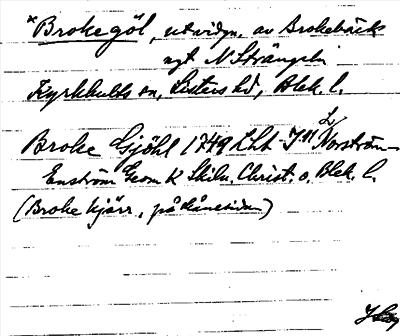 *Brokegöl, utvidgn. av Brokebäck
ngt N Strängeln
Kyrkhults sn, Listers hd, Blek. l.
Broke Gjöhl 1749 Lht J 11 Norström-
Enström Geom K Skiln. Christ. o. Blek. l.
(Broke kjärr, på skånesidan)